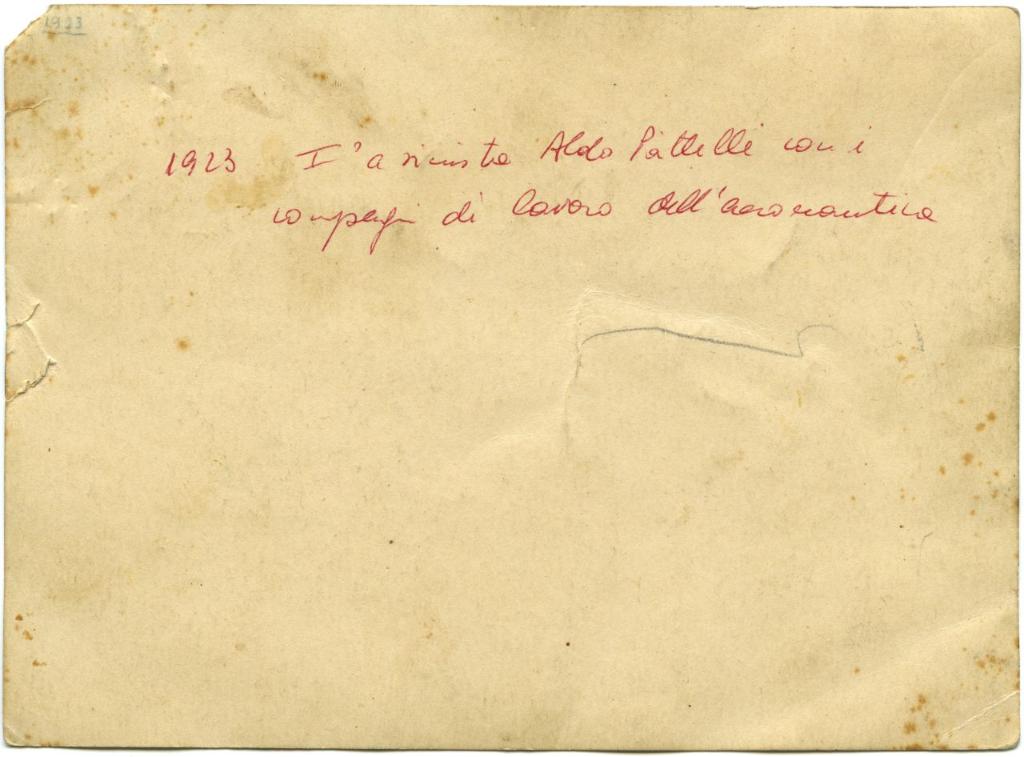 1923
1923 I° a sinistra Aldo Pittelli con i
compagni di lavoro dell'aeronautica